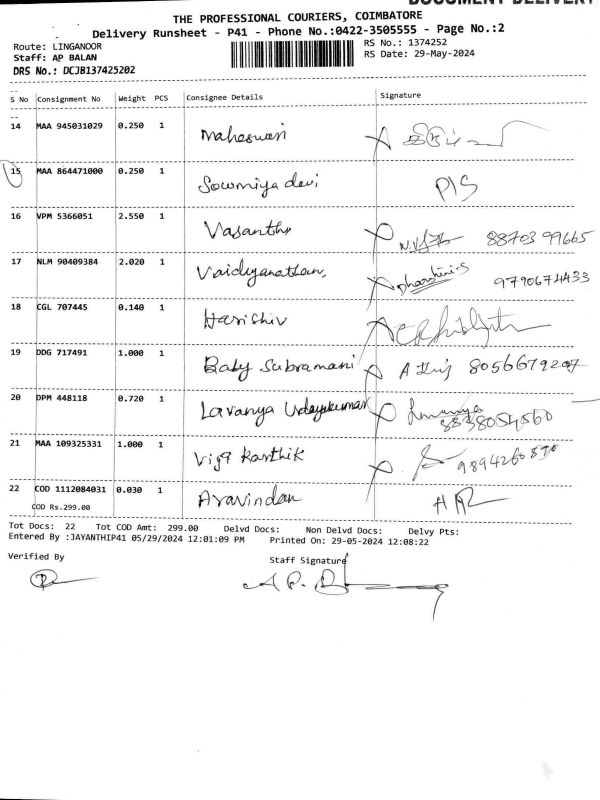 DOCUMENT DELIVERY
THE PROFESSIONAL COURIERS, COIMBATORE
Delivery Runsheet - P41 - Phone No.:0422-3505555 - Page No.:2
Route: LINGANOOR
RS No.: 1374252
Staff: AP BALAN
RS Date: 29-May-2024
DRS No.: DCJB137425202
S No Consignment No Weight PCS Consignee Details Signature
14 MAA 945031029 0.250 1 Maheswari
15 MAA 864471000 0.250 1 Sowmiya devi P/S
16 VPM 5366051 2.550 1 Vasantha 88703 99665
17 NLM 90409384 2.020 1 Vaidyanathan, 9790674433
18 CGL 707445 0.140 1 Harishiv
19 DDG 717491 1.000 1 Baby Subramani 8056679207
20 DPM 448118 0.720 1 Lavanya Udayakumar Lavanya
8838054560
21 MAA 109325331 1.000 1 Karthik
22 COD 1112084031 0.030 1 Aravindan
COD Rs.299.00
Tot Docs: 22 Tot COD Amt: 299.00 Delvd Docs: Non Delvd Docs: Delvy Pts:
Entered By :JAYANTHIP41 05/29/2024 12:01:09 PM Printed On: 29-05-2024 12:08:22
Verified By Staff Signature